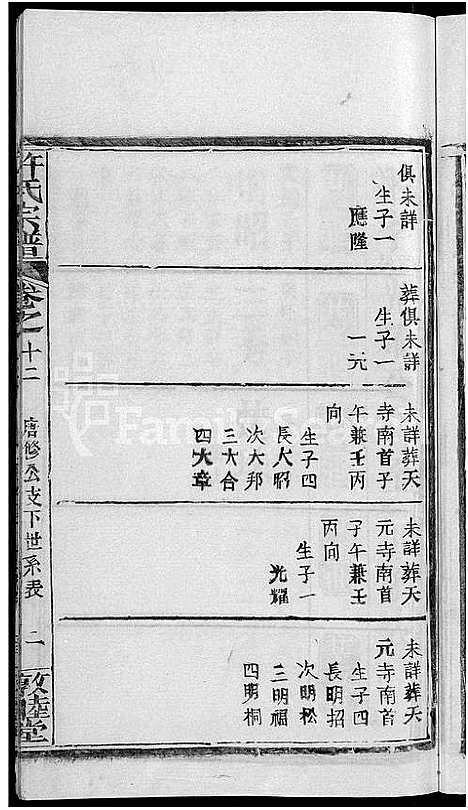 許氏宗譜
卷之十二
唐修公支下世系表
二
敦睦堂
俱未詳
生子一
應隆
葬俱未詳
生子一
一元
未詳葬天
寺南首子
午兼壬丙
向
生子四
長大昭
次大邦
三大合
四大章
未詳葬天
元寺南首
子午兼壬
丙向
生子一
光耀
未詳葬天
元寺南首
生子四
長明招
次明松
三明福
四明桐
FamilySearch